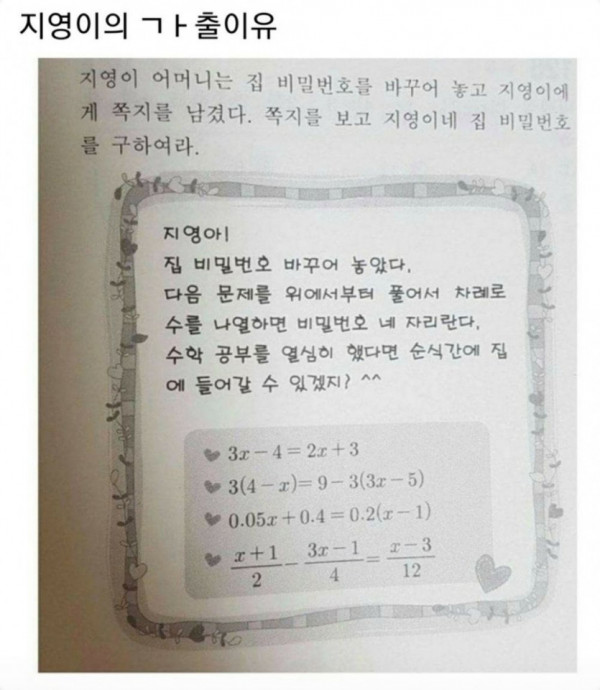 지영이의 ㄱㅏ출이유
지영이 어머니는 집 비밀번호를 바꾸어 놓고 지영이에
게 쪽지를 남겼다. 쪽지를 보고 지영이네 집 비밀번호
를 구하여라.
지영아!
집 비밀번호 바꾸어 놓았다.
다음 문제를 위에서부터 풀어서 차례로
수를 나열하면 비밀번호 네 자리란다.
수학 공부를 열심히 했다면 순식간에 집
에 들어갈 수 있겠지? ^^
3x-4=2x+3
3(4-x)=9-3(3x-5)
0.05x+0.4=0.2(x-1)
(x+1)/2 - (3x-1)/4 = (x-3)/12